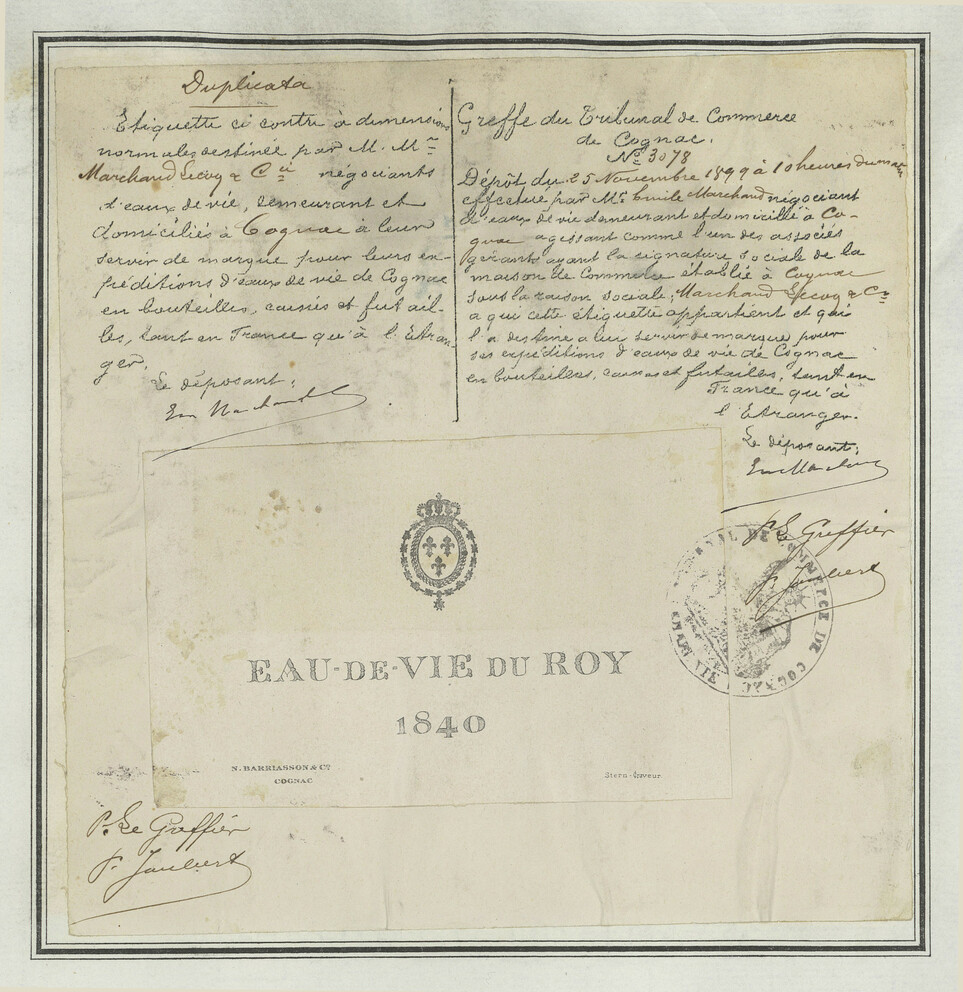 Duplicata
Etiquette ci contre à dimensions
normales destinée par M. Mrs
Marchand Lecoq & Cie négociants
d'eaux de vie, demeurant et
domiciliés à Cognac à leur
servir de marque pour leurs ex-
péditions d'eaux de vie de Cognac
en bouteilles, caisses et futail-
les, tant en France qu'à l'Etran-
ger.
Le déposant;
Em Marchand
Greffe du Tribunal de Commerce
de Cognac.
No 3078
Dépôt du 25 Novembre 1899 à 10 heures du matin
effectué par Mr Emile Marchand négociant
d'eaux de vie demeurant et domicilié à Co-
gnac agissant comme l'un des associés
gérants ayant la signature sociale de la
maison de Commerce établie à Cognac
sous la raison sociale; Marchand Lecoq & Cie
a qui cette étiquette appartient et qui
l'a destine a lui servir de marque pour
ses expéditions d'eaux de vie de Cognac
en bouteilles, caisses et futailles, tant en
France qu'à
l'Etranger.
Le déposant;
Em Marchand
P. Le Greffier
P. Jaubert
TRIBUNAL DE COMMERCE DE COGNAC
EAU-DE-VIE DU ROY
1840
N. BARRIASSON & Co
COGNAC
Stern-Graveur
P. Le Greffier
P. Jaubert